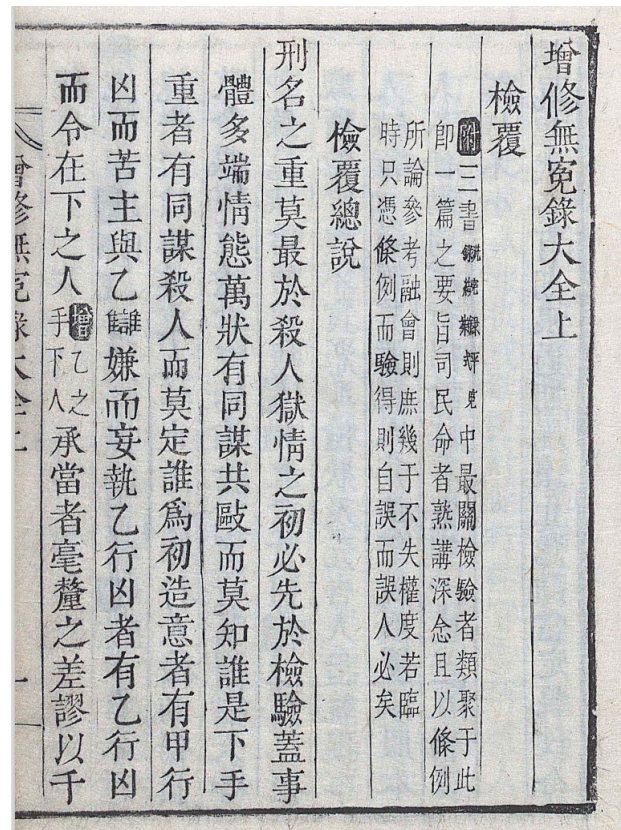 增修無冤錄大全上
檢覆
附三書洗冤錄平冤錄無冤錄中最關檢驗者類聚于此
卽一篇之要旨司民命者熟講深念且以條例
所論參考融會則庶幾于不失權度若臨
時只憑條例而驗得則自誤而誤人必矣
檢覆總說
刑名之重莫最於殺人獄情之初必先於檢驗蓋事
體多端情態萬狀有同謀共毆而莫知誰是下手
重者有同謀殺人而莫定誰爲初造意者有甲行
凶而苦主與乙讎嫌而妄執乙行凶者有乙行凶
而令在下之人增乙之手下人承當者毫釐之差謬以千
增修無冤錄大全上
一